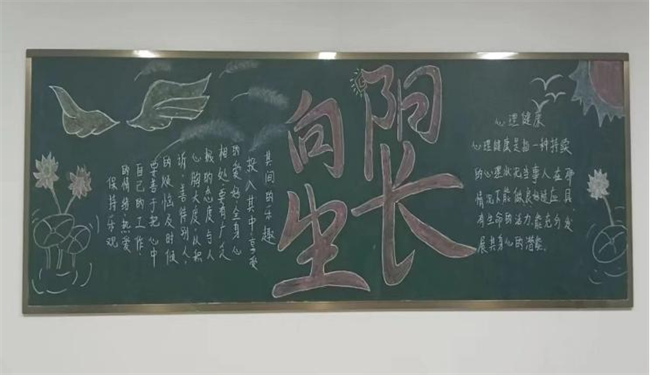 向阳
生长
保持乐观
的情绪,热爱
自己的工作;
要善于把心中
的烦恼及时倾
诉;善待别人,
心胸大度,以积
极的态度与人
相处;要有广泛
的爱好,全身心
投入其中享受
其间的乐趣
心理健康
心理健康是指一种持续
的心理状况,当事人在那
情况下能做良好适应,具
有生命的活力,能充分发
展其身心的潜能。